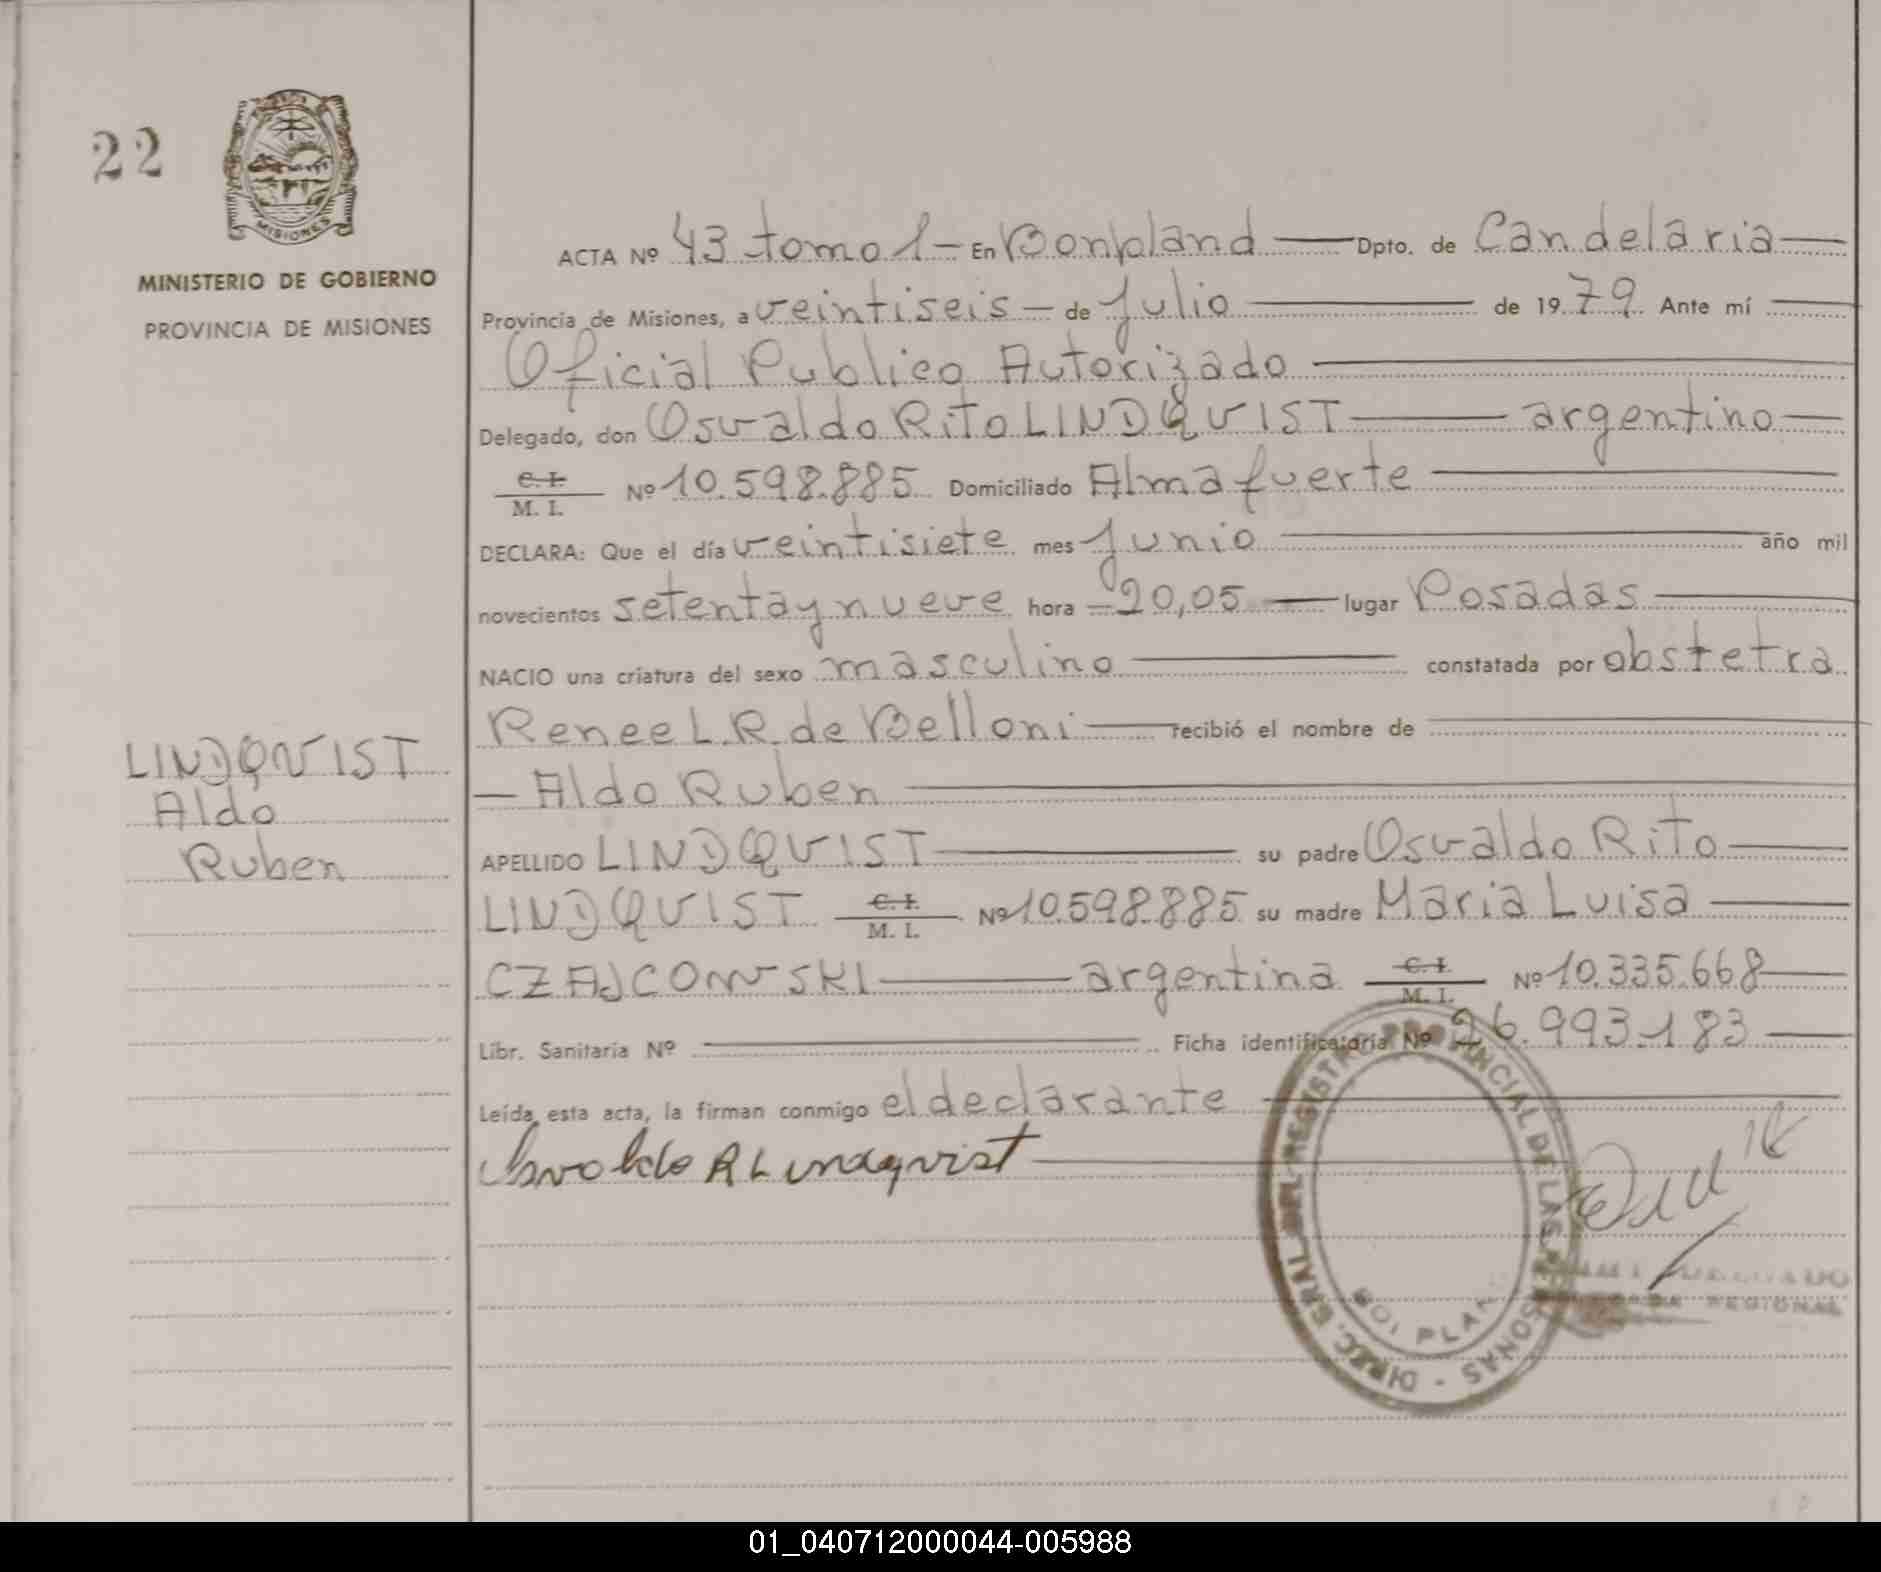 22
MISIONES
MINISTERIO DE GOBIERNO
PROVINCIA DE MISIONES
LINDQVIST
Aldo
Ruben
ACTA Nº 43 tomo 1 — En Bonpland — Dpto. de Candelaria —
Provincia de Misiones, a veintiseis — de Julio — de 1979. Ante mí —
Oficial Publico Autorizado —
Delegado, don Osvaldo Rito LINDQVIST — argentino —
C. I. / M. I. Nº 10.598.885 Domiciliado Almafuerte —
DECLARA: Que el día veintisiete mes Junio — año mil
novecientos setenta y nueve hora — 20,05 — lugar Posadas —
NACIO una criatura del sexo masculino — constatada por obstetra
Renee L. R. de Belloni — recibió el nombre de —
— Aldo Ruben —
APELLIDO LINDQVIST — su padre Osvaldo Rito —
LINDQVIST C. I. / M. I. Nº 10.598.885 su madre Maria Luisa —
CZAJCOWSKI — argentina C. I. / M. I. Nº 10.335.668 —
Libr. Sanitaria Nº — Ficha identificatoria Nº 26.993.183 —
Leída esta acta, la firman conmigo el declarante —
Osvaldo R Lindqvist —
DIREC. GRAL. DEL REGISTRO PROVINCIAL DE LAS PERSONAS -
REGIONAL
01_040712000044-005988